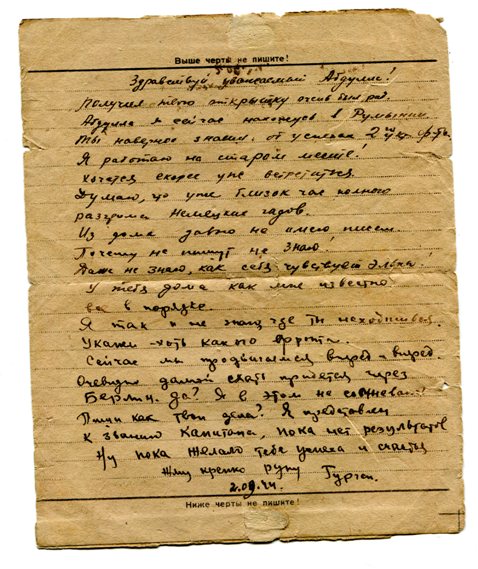 Выше черты не пишите!
Здравствуй уважаемый Абдулла!
Получил твою открытку очень был рад.
Абдулла я сейчас нахожусь в Румынии.
Ты наверное знаешь, от успехах 2го укр. фр-та.
Я работаю на старом месте!
Хочется скорее уже встретиться.
Думаю, що уже близок час полного
разгрома немецких гадов.
Из дома давно не имею писем.
Почему не пишут не знаю!
Даже не знаю, как себя чувствует
У тебя дома как мне известно
все в порядке.
Я так и не знаю где ты находишься.
Укажи хоть какого фронта.
Сейчас мы продвигаемся вперед и вперед.
Очевидно домой ехать придется через
Берлин. да? Я в этом не сомневаюсь!
Пиши как твои дела? Я представлен
к званию Капитана, пока нет результатов
Ну пока желаю тебе успеха и счастья
Жму крепко руку Гурген.
2.09.44.
Ниже черты не пишите!